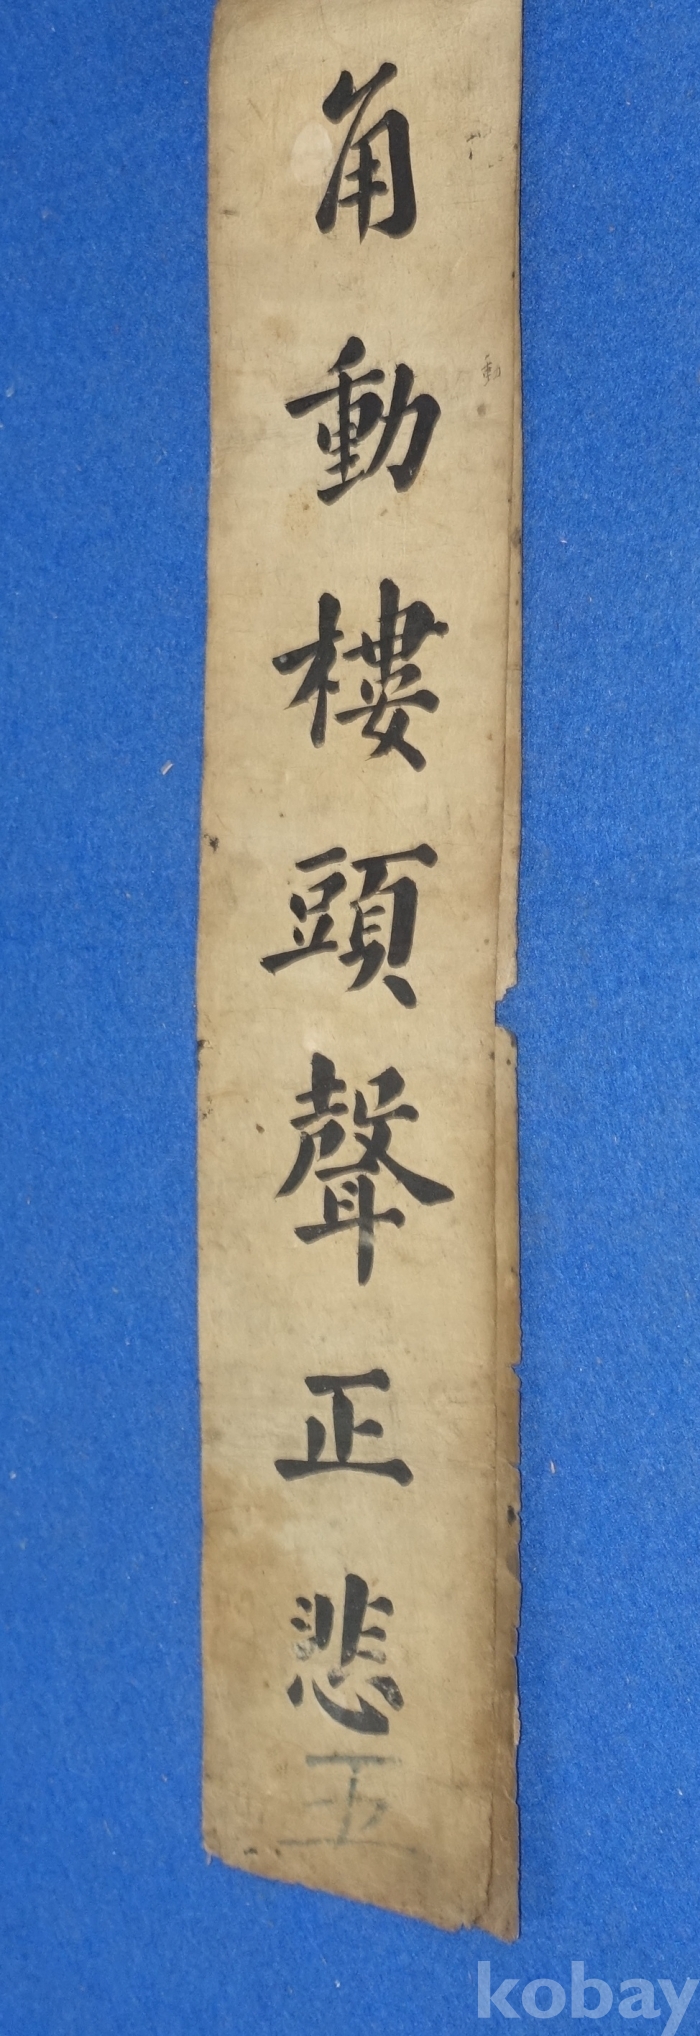 角動樓頭聲正悲
五
動
kobay